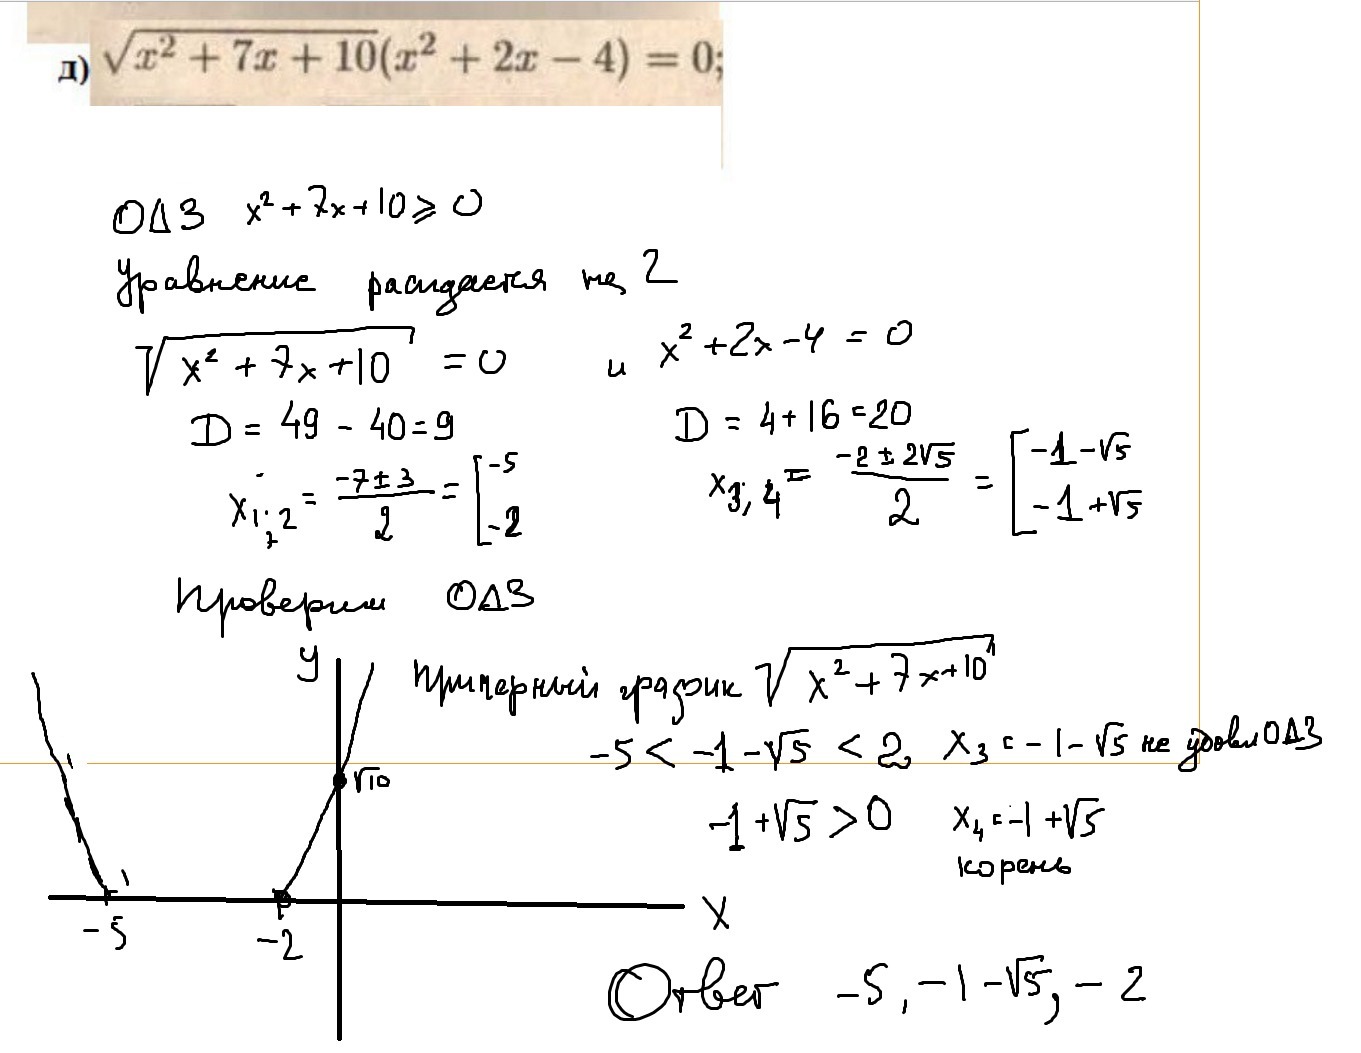 д) √(x² + 7x + 10)(x² + 2x − 4) = 0;
ОДЗ x² + 7x + 10 ⩾ 0
Уравнение распадается на 2
√(x² + 7x + 10) = 0 и x² + 2x − 4 = 0
D = 49 − 40 = 9 D = 4 + 16 = 20
x₁;₂ = (−7 ± 3)/2 = [−5 −2 x₃;₄ = (−2 ± 2√5)/2 = [−1−√5 −1+√5
Проверим ОДЗ
y
Примерный график √(x² + 7x + 10)
−5 < −1−√5 < 2, x₃ = −1−√5 не удовл ОДЗ
√10
−1+√5 > 0 x₄ = −1+√5
корень
−5 −2 x
Ответ −5, −1−√5, −2